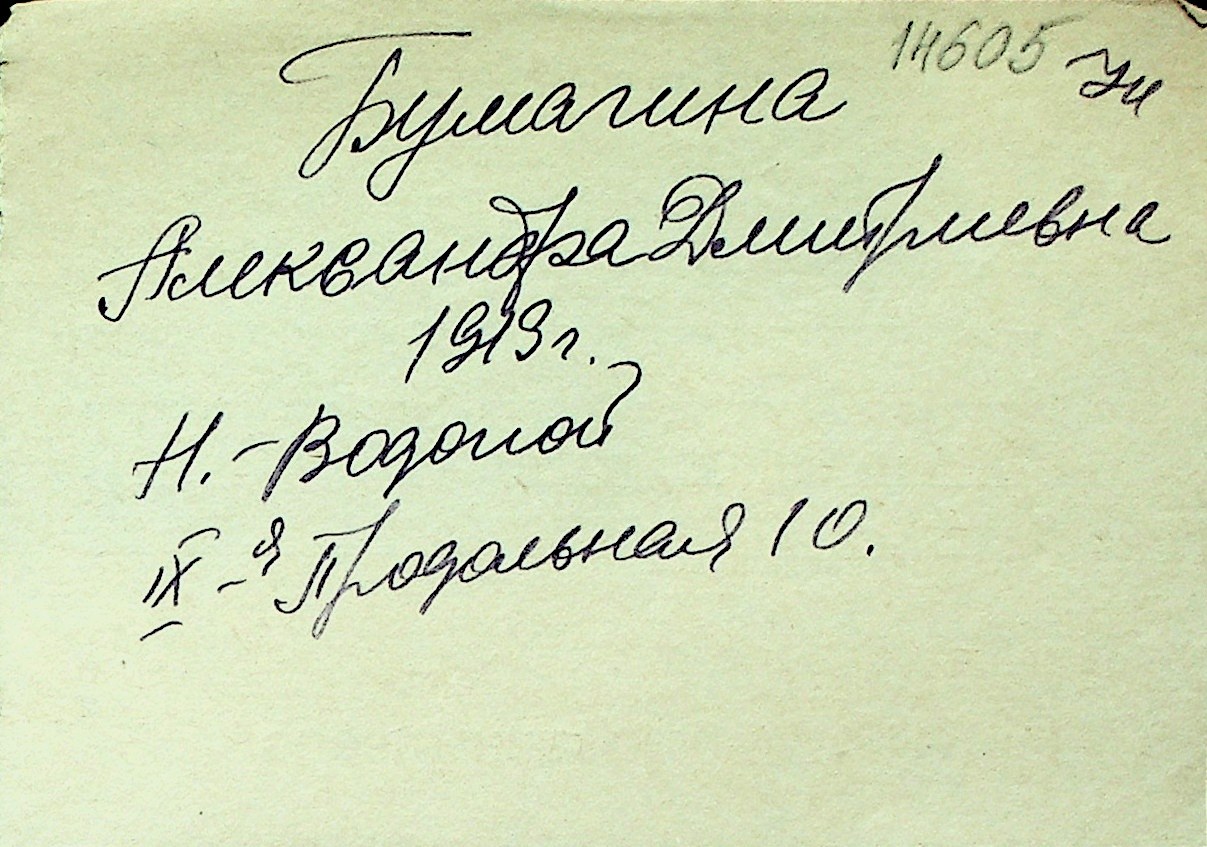 14605 Уч
Бумагина
Александра Дмитриевна
1913г.
Н.-Водопой
IX-я Продольная 10.